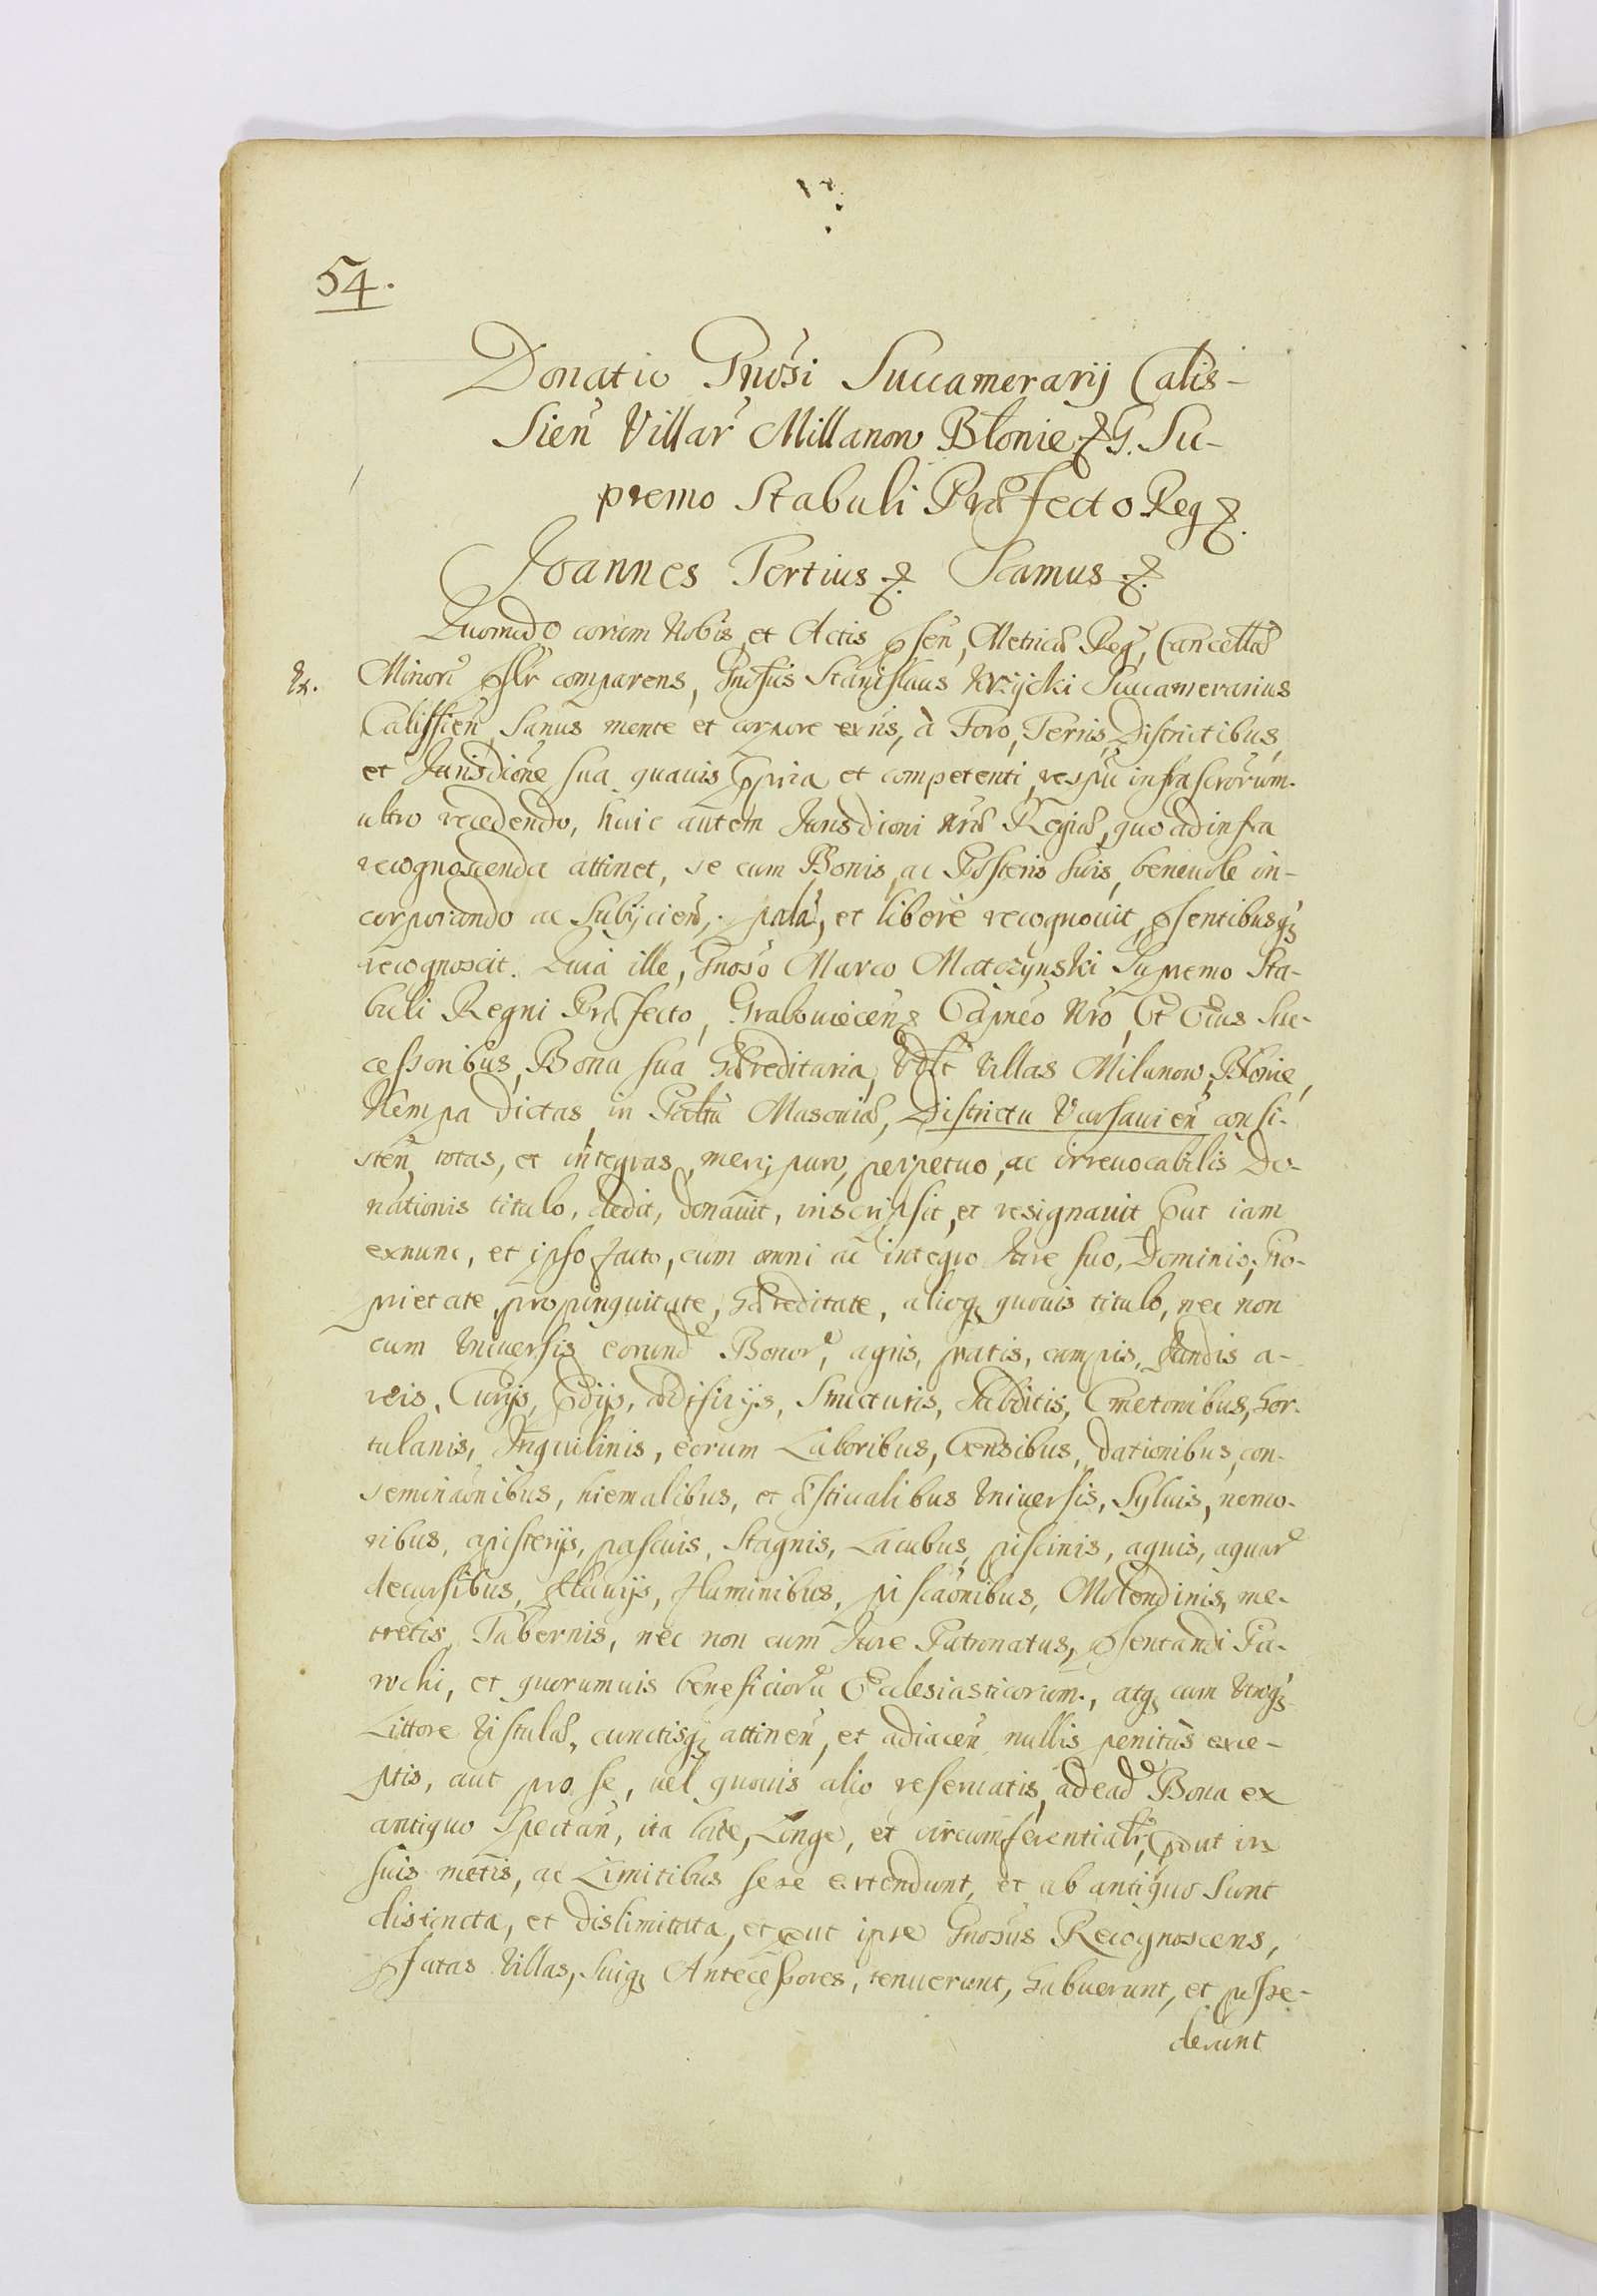 54.
Donatio Gnosi Succamerarij Calis-
Sien Villar Millanow Błonie & G. Su-
premo Stabuli Præfecto Reg &.
Joannes Tertius &. Scamus &.
Quomodo coram Nobis et Actis psen, Metricæ Reg, Cancellæ
Minor pslr comparens, Gnosus Stanislaus Krzycki Succamerarius
Calissien, Sanus mente et corpore exñs, à Foro, Terris, Districtibus,
et Jurisdione sua quavis ppria et competenti, respu infrascrorum.
ultro recedendo, huic autem Jurisdioni Nræ Regiæ, quo ad infra
recognoscenda attinet, se cum Bonis, ac Posteris suis, benevole in-
corporando ac Subijcien, palã, et liberè recognovit, psentibusq
recognoscit. Quia ille, Gnoso Marco Matczynski Supremo Sta-
buli Regni Præfecto, Graboviecen & Capneo Nro, Et Eius Suc-
cessoribus, Bona sua Hæreditaria, Vdlt Villas Milanow, Błonie,
Kempa dictas, in Paltu Masoviæ, Districtu Varsavien consi-
sten, totas, et integras, meri, puro, perpetuo, ac irrevocabilis Do-
nationis titulo, dedit, donavit, inscripsit, et resignavit put iam
exnunc, et ipso facto, cum omni ac integro Jure suo, Dominio, Pro-
prietate, propinquitate, Hæreditate, alioq quovis titulo, nec non
cum Universis eorund Bonor, agris, pratis, campis, fundis a-
reis, Curijs, Pdijs, ædificijs, Structuris, Subditis, Cmetonibus, Hor-
tulanis, Inquilinis, eorum Laboribus, Censibus, dationibus, con-
seminaonibus, hiemalibus, et æstivalibus Universis, Sylvis, nemo-
ribus, apisterijs, pascuis, Stagnis, Lacubus, piscinis, aquis, aquar
decursibus, fluvijs, fluminibus, piscaonibus, Molendinis, me-
tretis, Tabernis, nec non cum Jure Patronatus, psentandi Pa-
rochi, et quorumvis beneficioru Ecclesiasticorum, atq cum utroq
Littore Vistulæ, cunctisq attinen, et adiacen nullis penitùs exce-
ptis, aut pro se, uel quovis alio reservatis, ad ead Bona ex
antiquo Spectan, ita late, Longe, et circumferentialr, put in
suis metis, ac Limitibus sese extendunt, et ab antiquo sunt
distincta, et dislimitata, et put ipse Gnosus Recognoscens,
pfatas Villas, suiq Antecessores, tenuerunt, habuerunt, et posse-
derunt